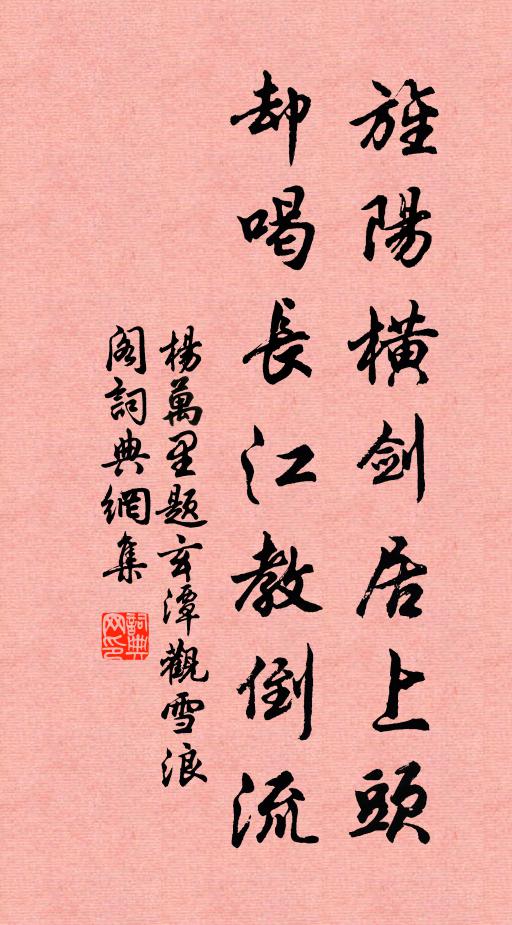 旌陽橫劍居上頭
却喝長江教倒流
楊萬里题玄潭觀雪浪
阁詞典網集
詞典
网印